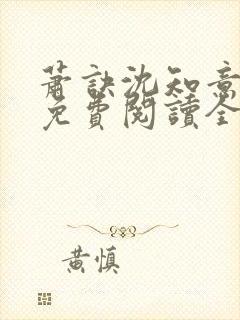 蕭訣沈知意
免費閱讀全
黃慎